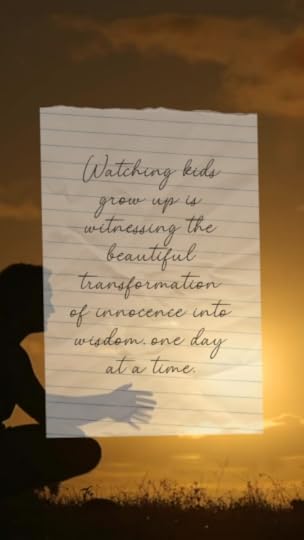 Watching kids
grow up is
witnessing the
beautiful
transformation
of innocence into
wisdom.one day
at a time.